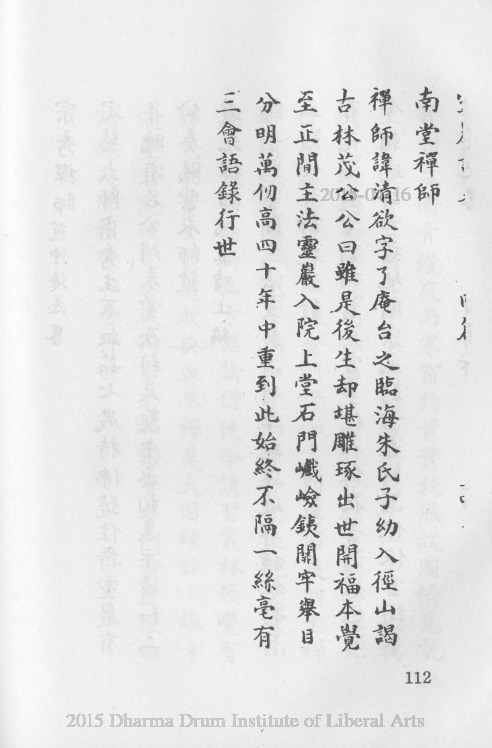 南堂禪師
禪師諱清欲字了庵台之臨海朱氏子幼入徑山謁
古林茂公公曰雖是後生却堪雕琢出世開福本覺
至正間主法靈巖入院上堂石門巇嶮鐵關牢舉目
分明萬仞高四十年中重到此始終不隔一絲毫有
三會語錄行世
112
2015 Dharma Drum Institute of Liberal Arts